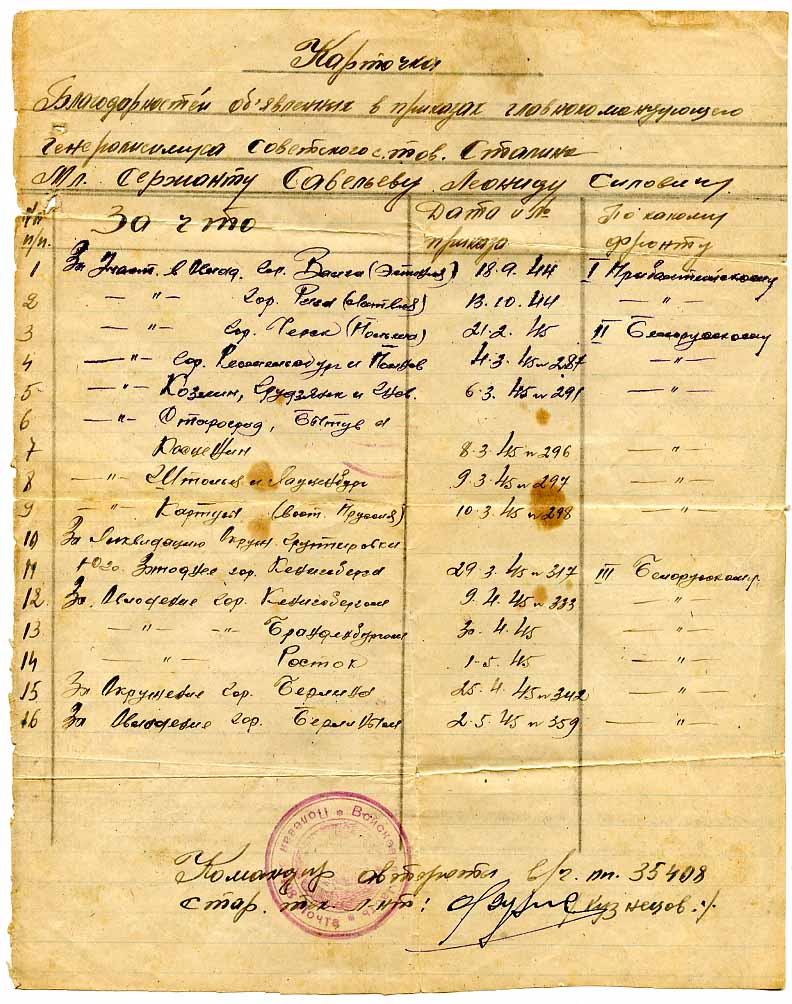 Карточка
Благодарностей об'явленных в приказах главнокомандующего
Генералисимуса Советского с. тов. Сталина
Мл. Сержанту Савельеву Леониду Силовичу
№№ п/п. За что Дата и № приказа По какому фронту
1 За Участ. в Овлад. гор. Валга (Эстония) 18.9.44 I Прибалтийскому
2 —"— гор. Рига (Латвия) 13.10.44 —"—
3 —"— гор. Черск (Польша) 21.2.45 II Белорусскому
4 —"— гор. и 4.3.45 № 287 —"—
5 —"— Козлин, и 6.3.45 № 291 —"—
6 —"— Старогард, Бытув и
7 Косцежин 8.3.45 № 296 —"—
8 —"— Штольп и Лауенбург 9.3.45 № 297 —"—
9 —"— Картузы (Вост. Пруссия) 10.3.45 № 298 —"—
10 За Ликвидацию Окруж. Группировки
11 Юго. Западнее гор. Кенигсберга 29.3.45 № 317 III Белорусскому
12. За Овладение гор. Кенигсбергом 9.4.45 № 333 —"—
13 —"— —"— Бранденбургом 30.4.45 —"—
14 —"— Росток 1.5.45 —"—
15 За Окружение гор. Берлина 25.4.45 № 342 —"—
16 За Овладение гор. Берлином 2.5.45 № 359 —"—
Полевая почта * Войсковая часть *
Командир автороты в/ч. пп. 35408
Стар. тех л-нт: /Кузнецов./